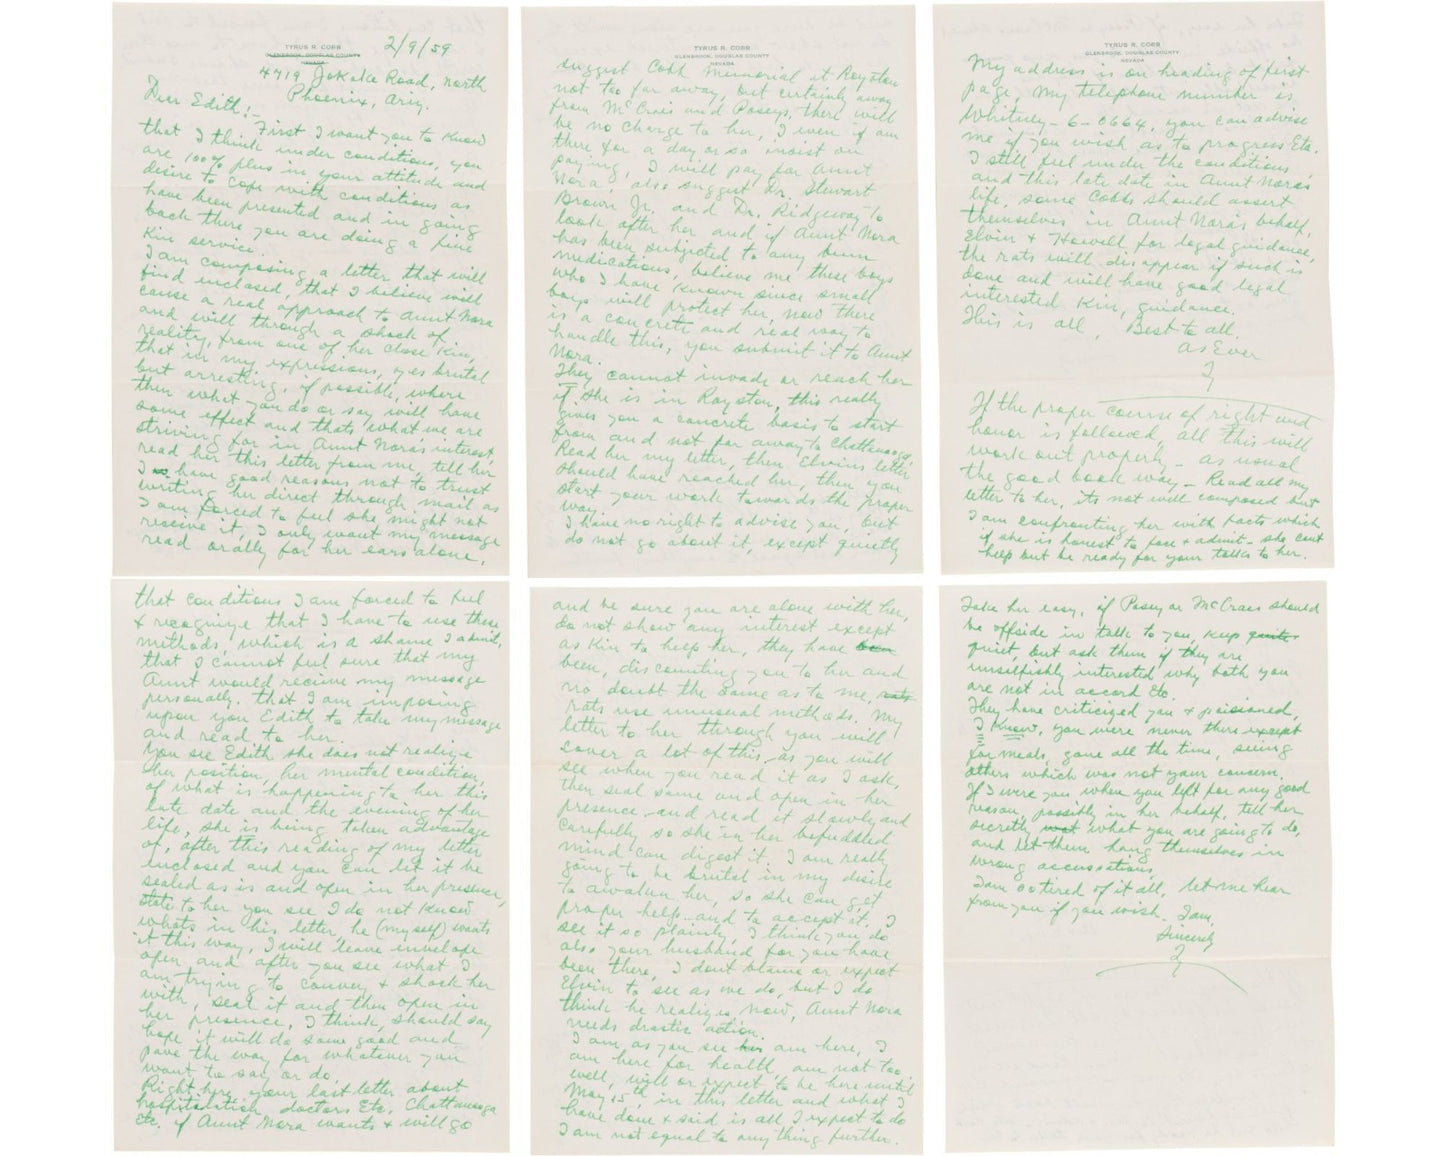 TYRUS R. COBB
GLENBROOK, DOUGLAS COUNTY
NEVADA
2/9/59
4719 Jokake Road, North
Phoenix, Ariz.
Dear Edith:-
First I want you to know
that I think under conditions, you
are 100% plus in your attitude and
desire to cope with conditions as
have been presented and in going
back there you are doing a fine
Kin service.
I am composing a letter that will
find inclosed, that I believe will
cause a real approach to Aunt Nora
and will through a shock of
reality, from one of her close Kin,
that in my expressions, yes brutal
but arresting, if possible, where
then what you do or say will have
some effect and thats what we are
striving for in Aunt Nora's interest,
read her this letter from me, tell her
I have good reasons not to trust
writing her direct through mail as
I am forced to feel she might not
receive it, I only want my message
read orally for her ears alone,
that conditions I am forced to feel
& recognize that I have to use these
methods, which is a shame I admit,
that I cannot feel sure that my
Aunt would receive my message
personally. that I am imposing
upon you Edith to take my message
and read to her.
You see Edith she does not realize
her position, her mental condition,
of what is happening to her this
late date and the evening of her
life, she is being taken advantage
of, after this reading of my letter
inclosed and you can let it be
sealed as is and open in her presence,
state to her you see I do not know
whats in his letter, he (myself) wants
it this way, I will leave envelope
open and after you see what I
am trying to convey & shock her
with, seal it and then open in
her presence, I think, should say
hope it will do some good and
pave the way for whatever you
want to say or do.
Right here, your last letter about
hospitalitish, doctors Etc. Chattanooga
Etc. if Aunt Nora wants & will go
TYRUS R. COBB
GLENBROOK, DOUGLAS COUNTY
NEVADA
suggest Cobb Memorial at Royston
not too far away, but certainly away
from McCrais and Poseys, there will
be no charge to her, I even if am
there for a day or so insist on
paying, I will pay for Aunt
Nora, also suggest Dr. Stewart
Brown Jr. and Dr. Ridgeway to
look after her and if Aunt Nora
has been subjected to any been
medications, believe me these boys
who I have known since small
boys will protect her, now there
is a concrete and real way to
handle this, you submit it to Aunt
Nora.
They cannot invade or reach her
if she is in Royston, this really
gives you a concrete basis to start
from and not far away to Chattanooga,
Read her my letter, then Elvins letter
should have reached her, then you
start your work towards the proper
way.
I have no right to advise you, but
do not go about it, except quietly
and be sure you are alone with her,
do not show any interest except
as Kin to help her, they have
been, discounting you to her and
no doubt the same as to me,
rats use unusual methods. My
letter to her through you will
cover a lot of this, as you will
see when you read it as I ask,
then seal same and open in her
presence and read it slowly and
carefully, so she in her befuddled
mind can digest it. I am really
going to be brutal in my desire
to awaken her, so she can get
proper help and to accept it, I
see it so plainly, I think you do
also your husband for you have
been there, I dont blame or expect
Elvin to see as we do, but I do
think he realizes now, Aunt Nora
needs drastic action.
I am as you see am here, I
am here for health, am not too
well, will or expect to be here until
May 15th, in this letter and what I
have done & said is all I expect to do
I am not equal to anything further.
TYRUS R. COBB
GLENBROOK, DOUGLAS COUNTY
NEVADA
My address is on heading of first
page, my telephone number is
Whitney-6-0664, you can advise
me if you wish as to progress Etc.
I still feel under the conditions
and this late date in Aunt Nora's
life, some Cobbs should assert
themselves in Aunt Nora's behalf,
Elvin & Howell for legal guidance,
the rats will disappear if such is
done and will have good legal
interested Kin, guidance.
This is all, Best to all.
As Ever
Ty
If the proper course of right and
honor is followed, all this will
work out properly - as usual
the good book way - Read all my
letter to her, its not well composed but
I am confronting her with facts which
if she is honest to face & admit - she cant
help but be ready for your talks to her.
Take her easy, if Posey or McCrais should
be offside in talk to you, keep
quiet, but ask them if they are
unselfishly interested why both you
are not in accord Etc.
They have criticized you & poisioned,
I know, you were never there except
for meals, gone all the time, seeing
others which was not your concern.
If I were you when you left for any good
reason, possibly in her behalf, tell her
secretly what you are going to do,
and let them hang themselves in
wrong accusations,
I am so tired of it all, let me hear
from you if you wish. I am,
Sincerely
Ty